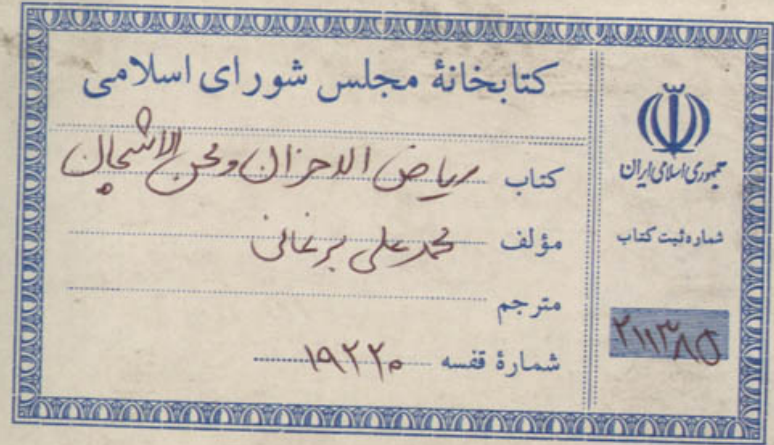 کتابخانهٔ مجلس شورای اسلامی
کتاب ریاض الاحزان و محن الاشجان
مؤلف محمدعلی برغانی
مترجم
شمارهٔ قفسه ۱۹۲۲۰
جمهوری اسلامی ایران
شماره ثبت کتاب
۲۱۱۳۸۵